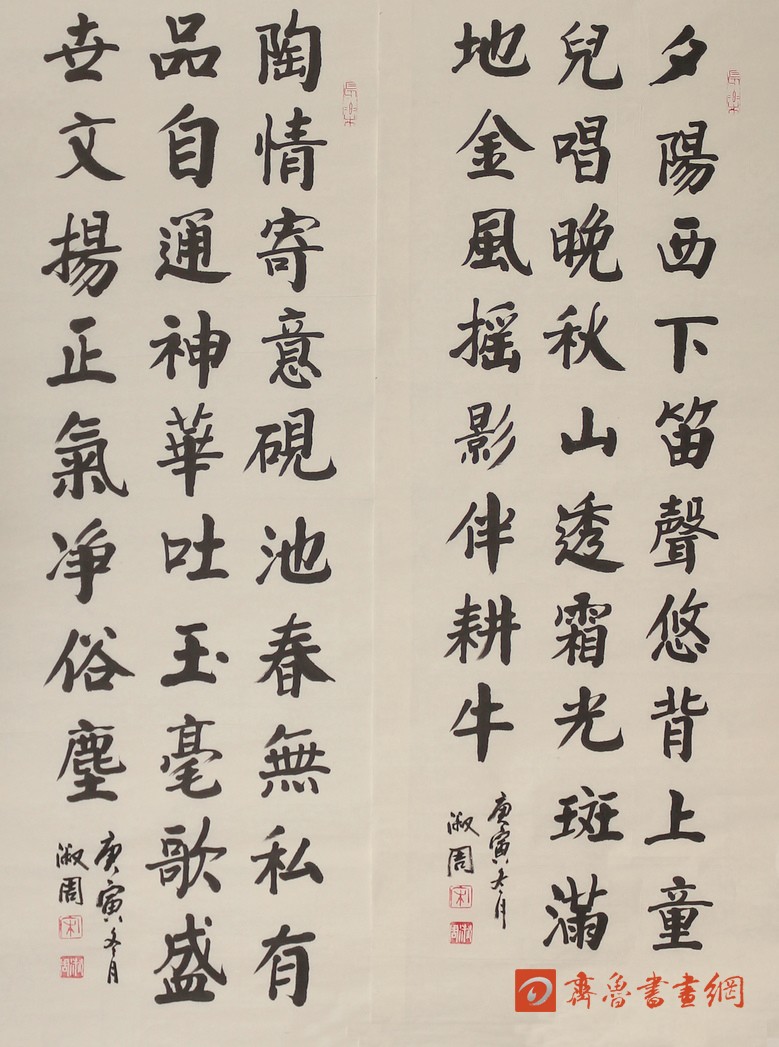 長樂
夕陽西下笛聲悠背上童
兒唱晚秋山透霜光斑滿
地金風摇影伴耕牛
庚寅冬月
淑周
長樂
陶情寄意硯池春無私有
品自通神華吐玉毫歌盛
世文揚正氣净俗塵
庚寅冬月
淑周
齊魯書畫網